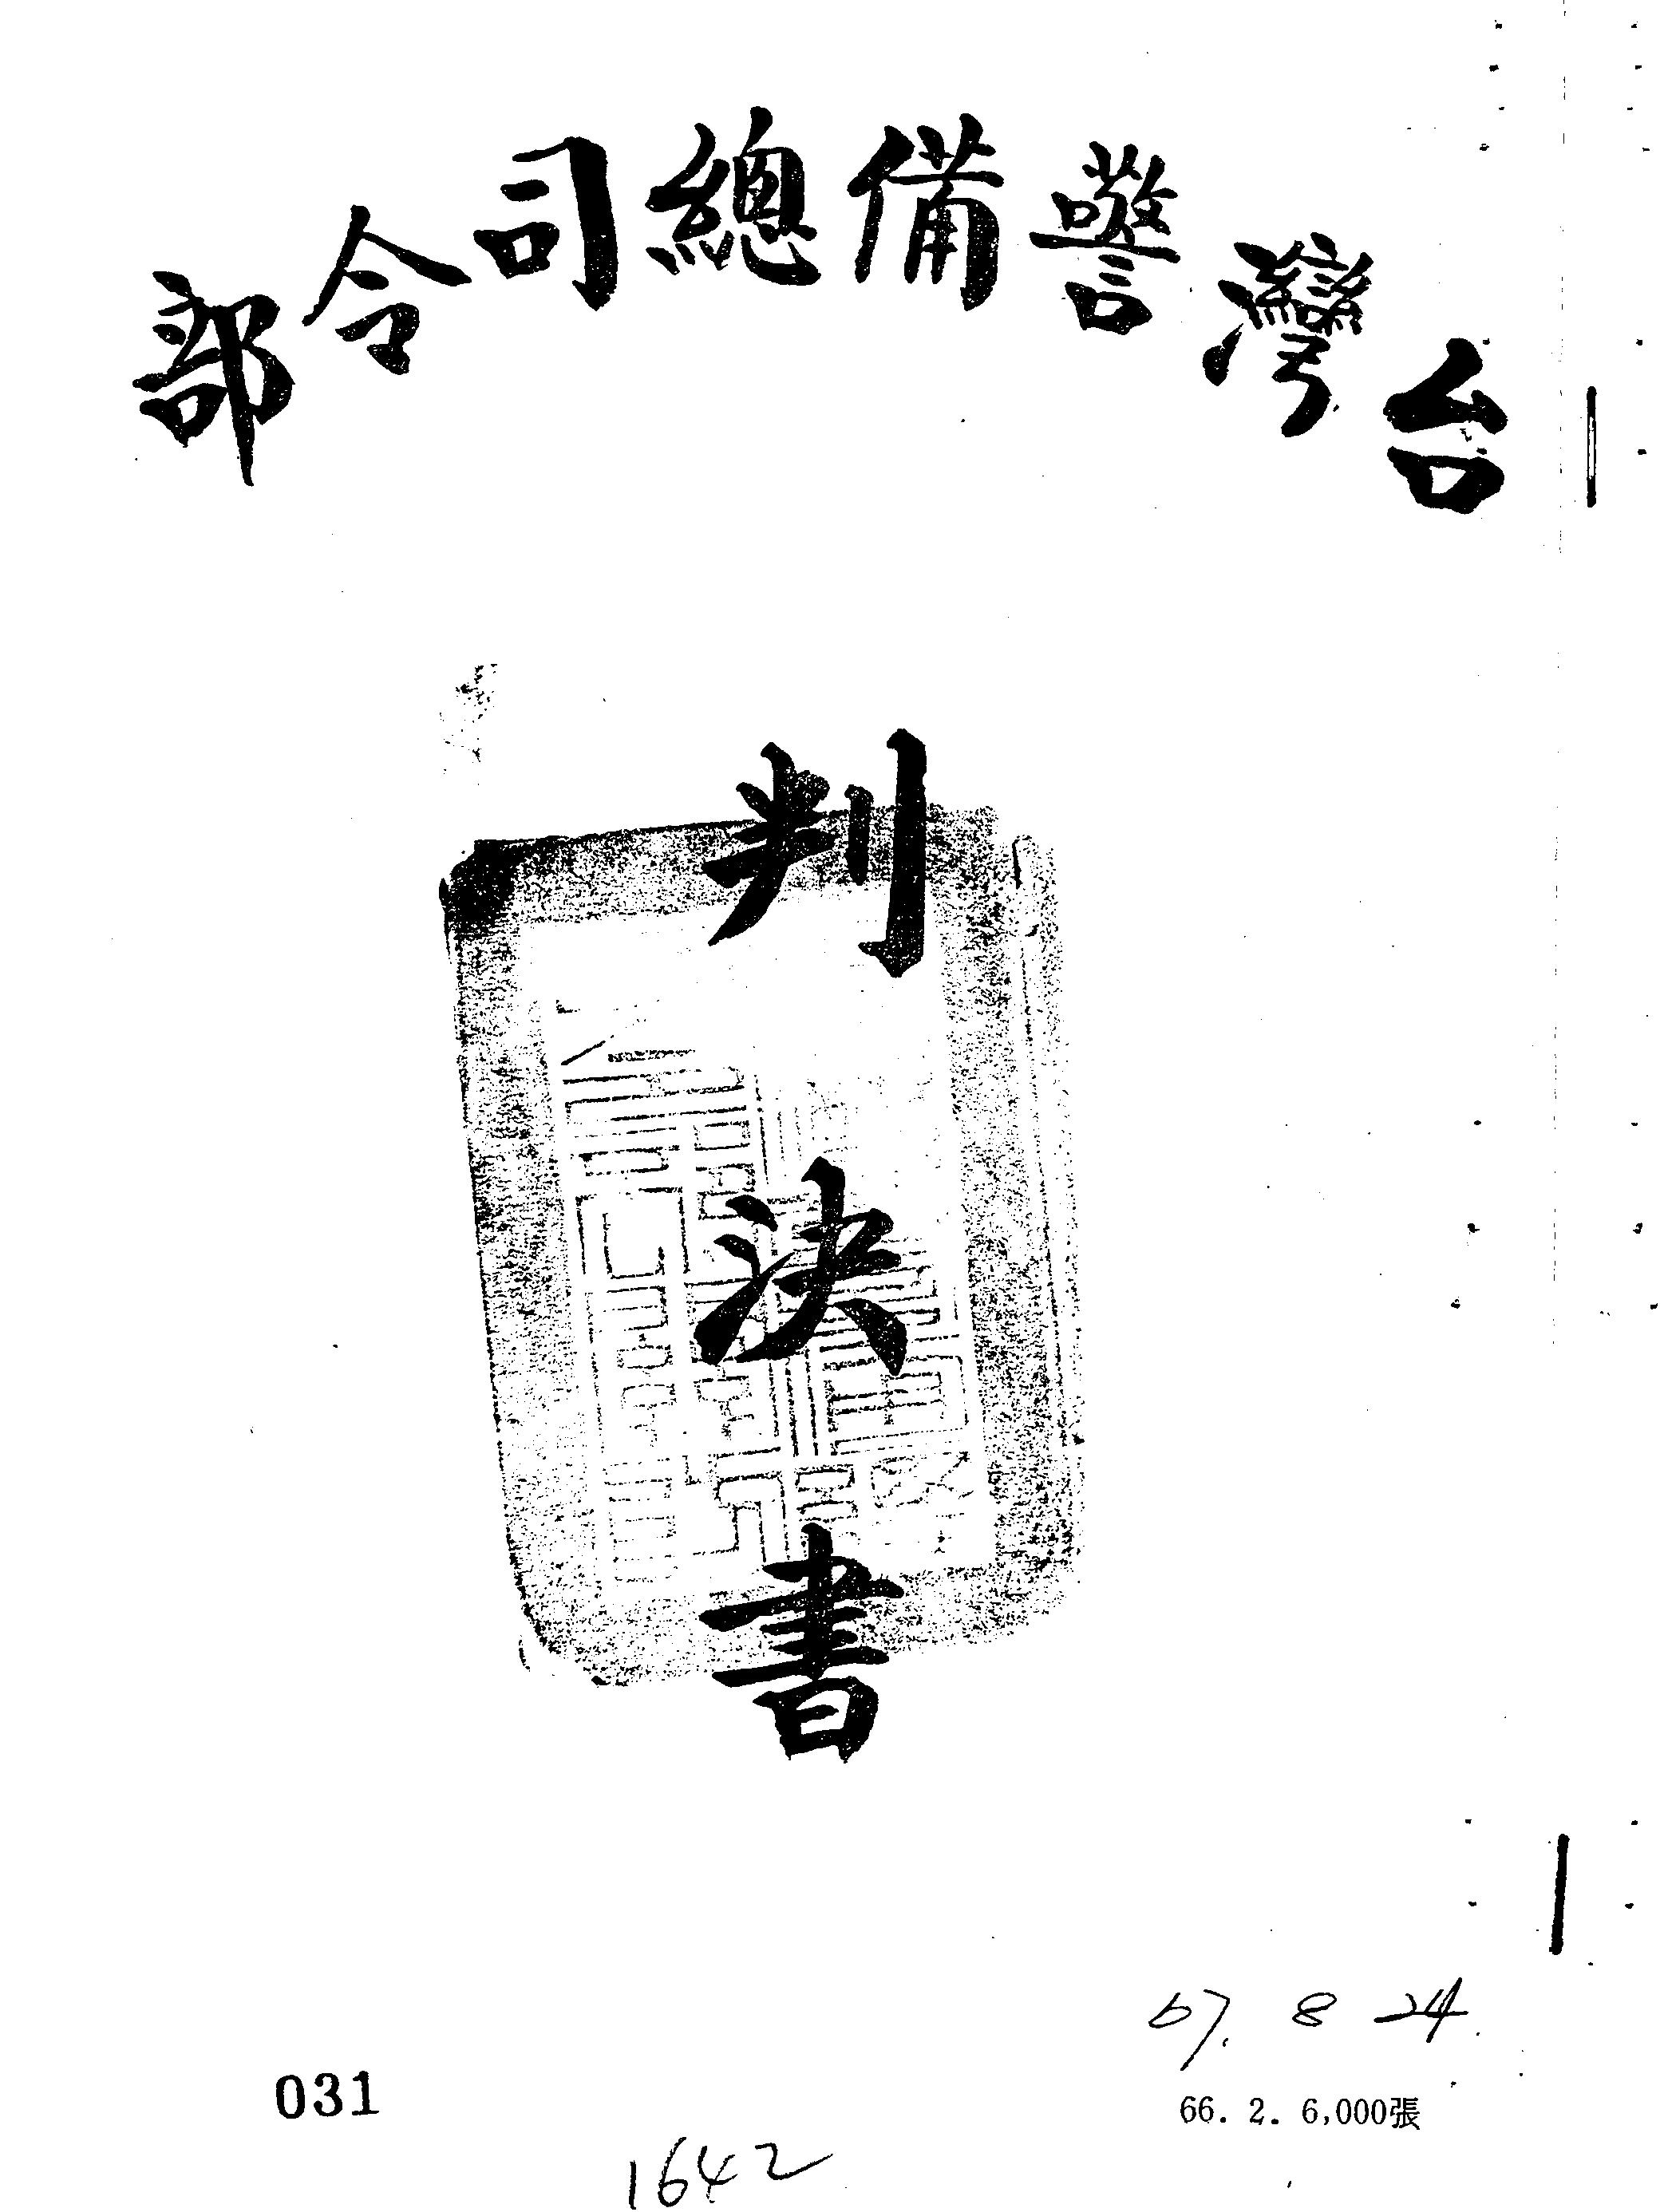 台灣警備總司令部
判決書
67. 8 24
66. 2. 6,000張
031
1642